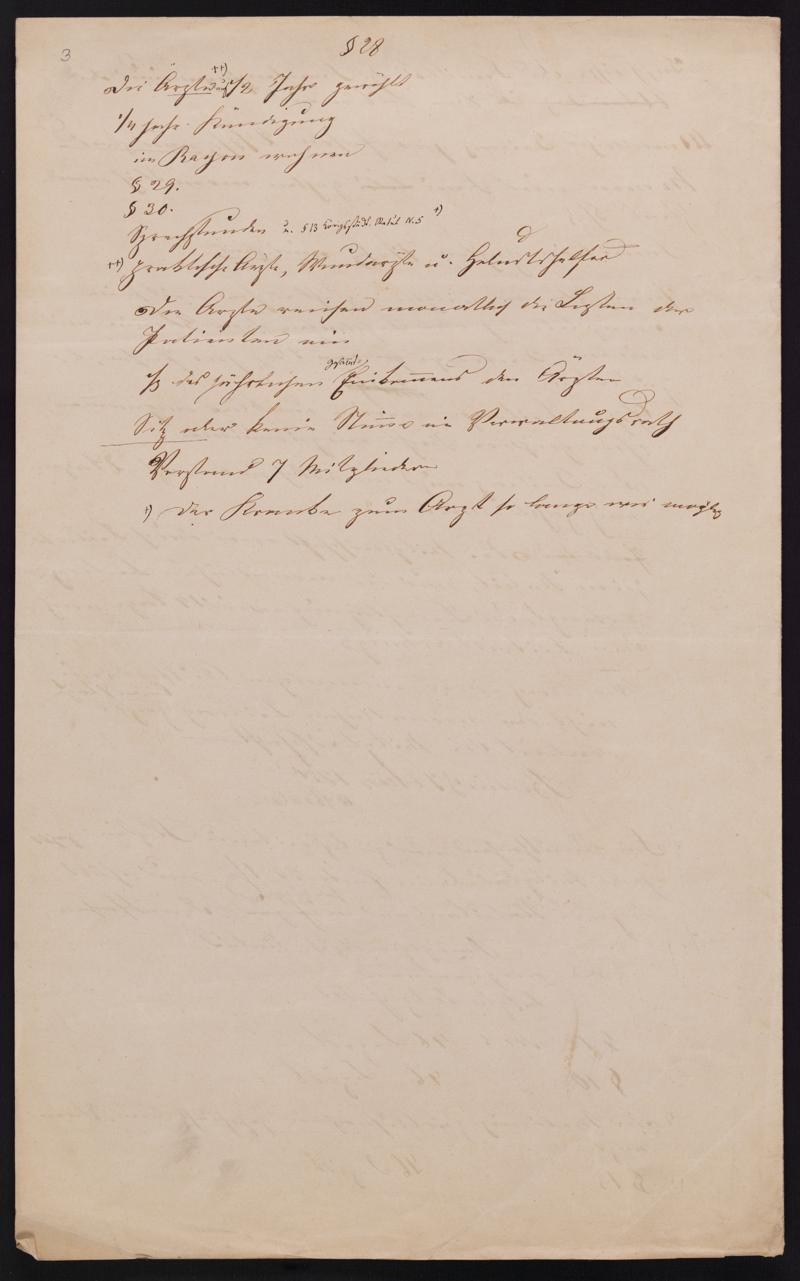 3
§ 28
Die Ärzte ++) auf 1/2 Jahr gewählt
1/4 Jahr Kündigung
im Rayon wohnen
§ 29.
§ 30.
Sprechstunden u. § 13 N. 5 +)
++) praktische Ärzte, Wundärzte u. Geburtshelfer
Die Ärzte reichen monatlich die Listen der
Patienten ein
1/3 des jährlichen gesamt Einkom̅ens den Ärzten
Sitz aber keine Stim̅e im Verwaltungsrath
Vorstand 7 Mitglieder
+) Der Kranke zum Arzt so lange wie möglich